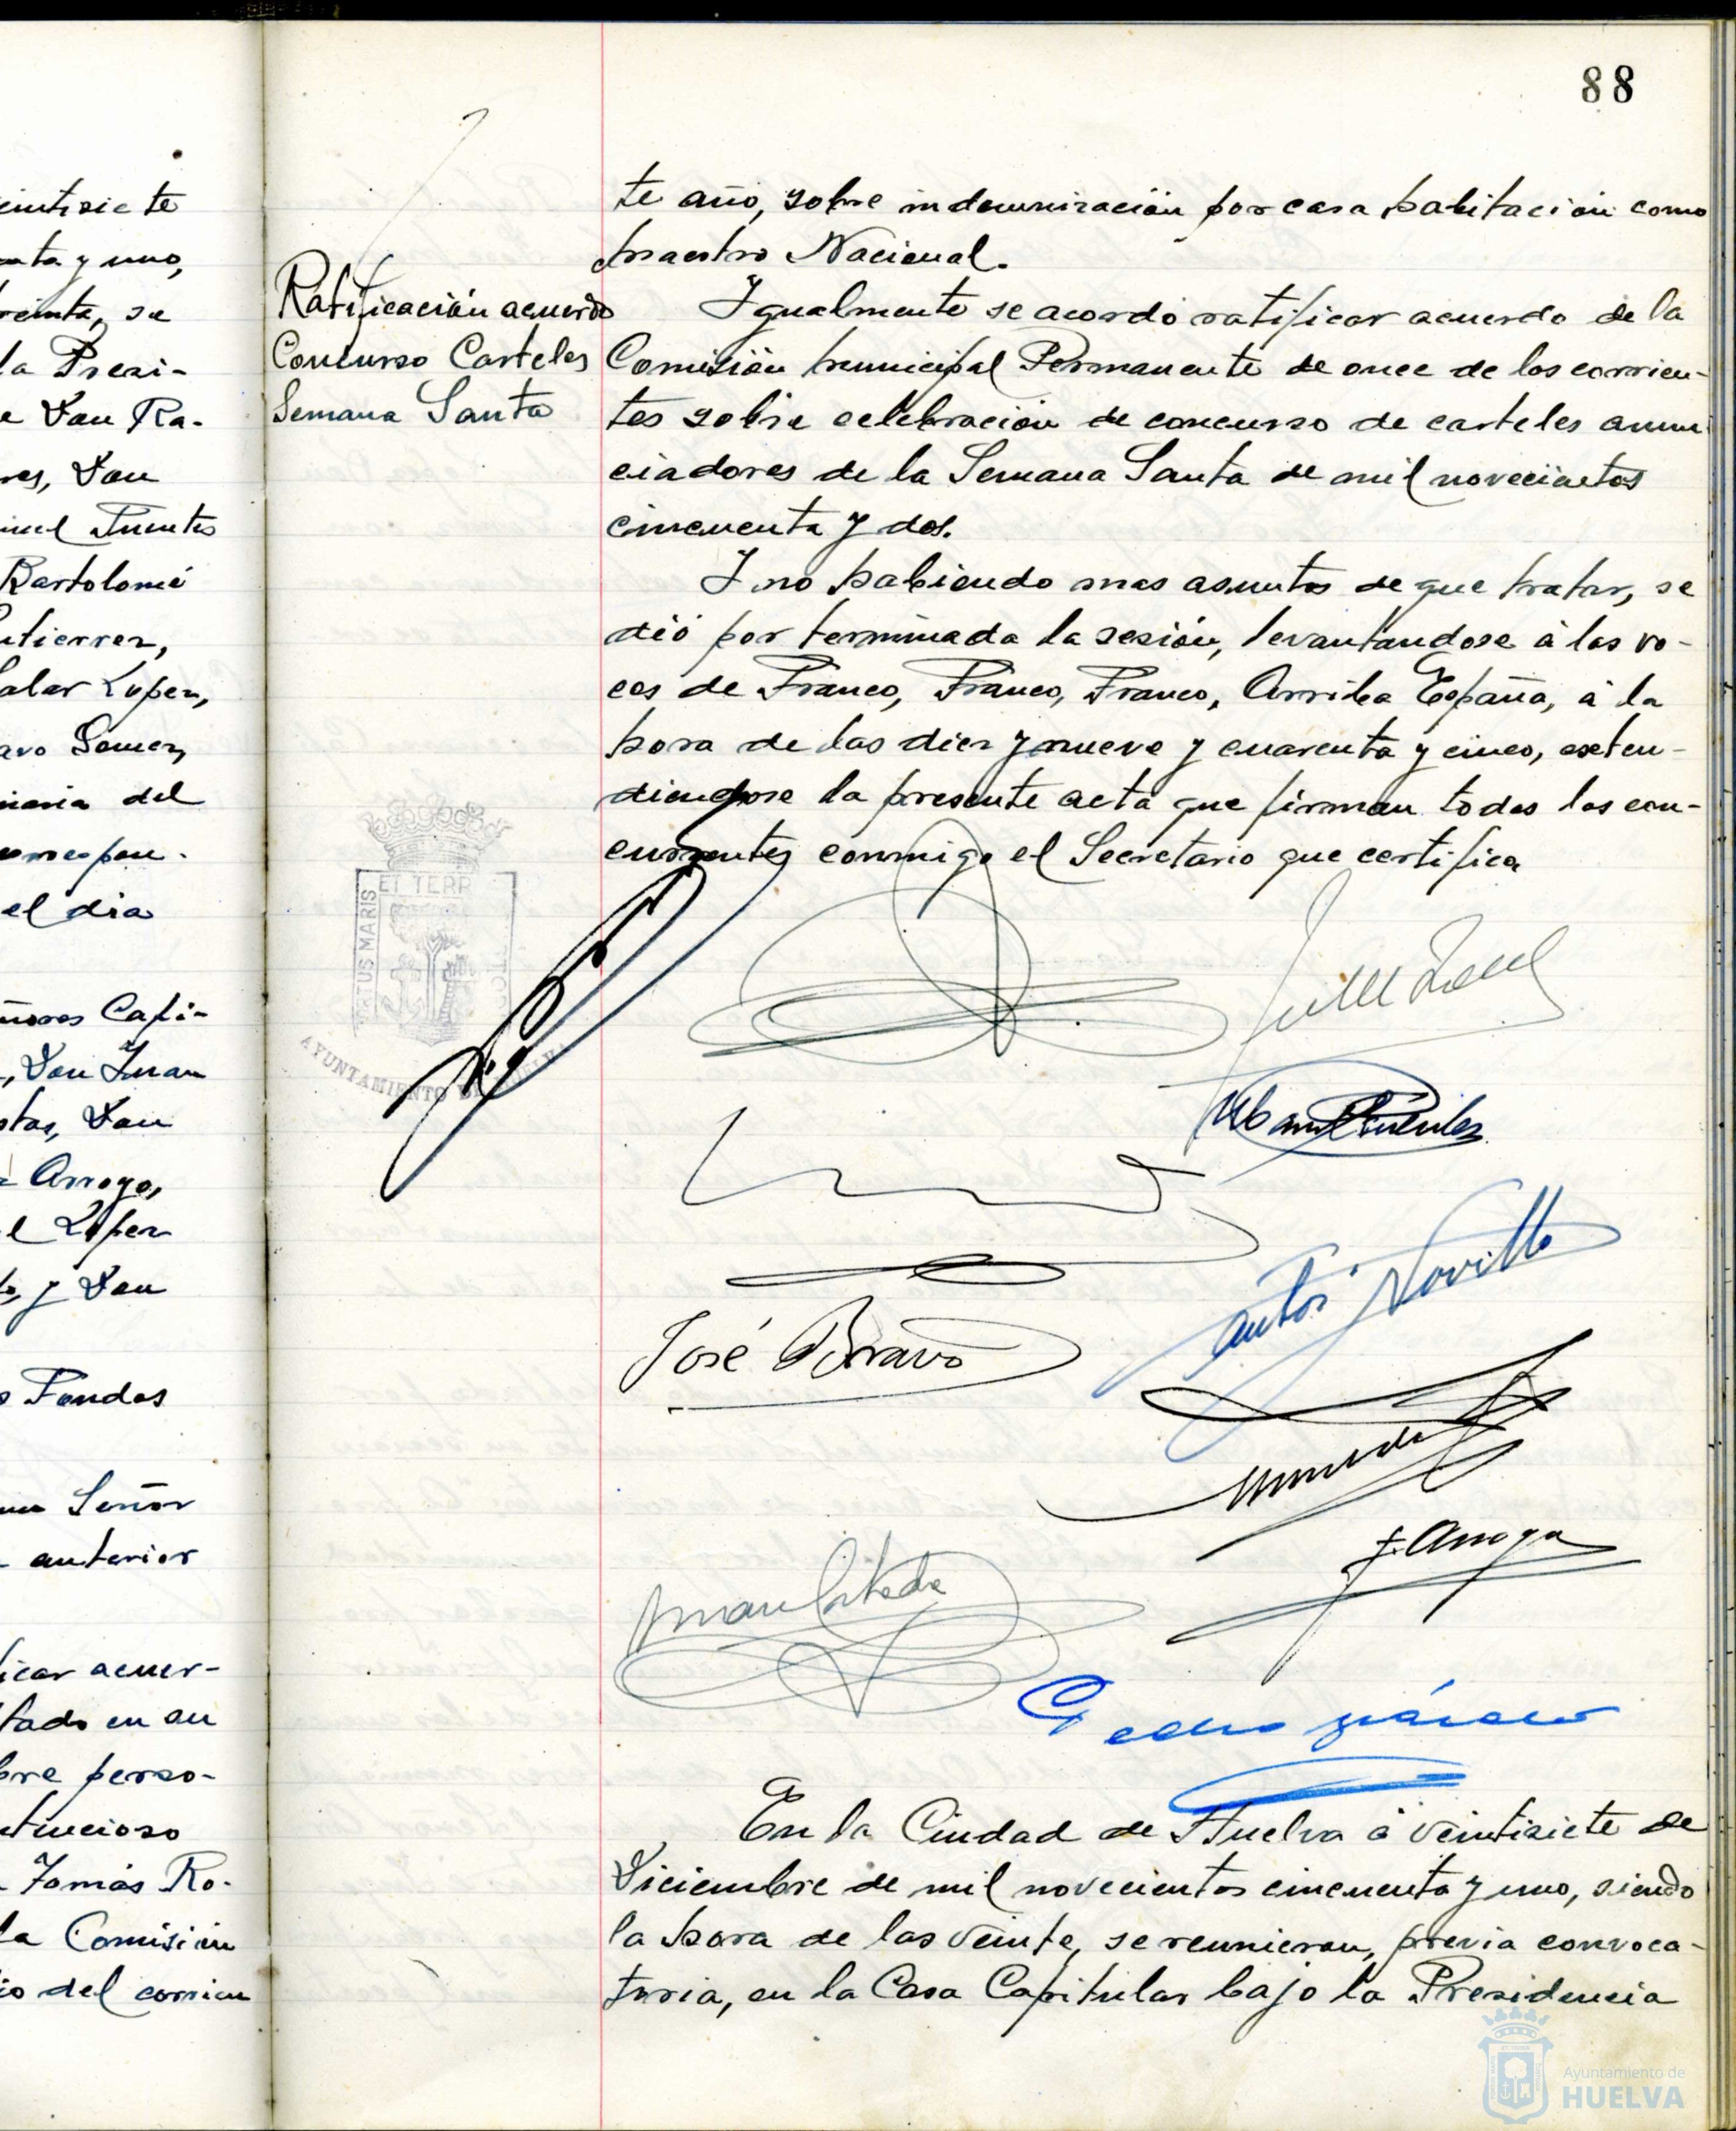 88
eintisiete
nta y uno,
reinta, se
la Presi-
e Don Ra-
res, Don
nuel Fuentes
Bartolomé
utierrez,
alar Lopez,
avo Gomez,
naria del
correspon-
el dia
ñores Capi-
, Don Juan
stas, Don
Arroyo,
l Lopez
, y Don
s Fondos
Señor
anterior
icar acuer-
tado en su
bre perso-
ntencioso
Tomás Ro-
la Comisión
io del corrien
Ratificación acuerdo
Concurso Carteles
Semana Santa
te año, sobre indemnización por casa habitación como
Maestro Nacional.
Igualmente se acordó ratificar acuerdo de la
Comisión Municipal Permanente de once de los corrien-
tes sobre celebración de concurso de carteles anun
ciadores de la Semana Santa de mil novecientos
cincuenta y dos.
Y no habiendo mas asuntos de que tratar, se
dió por terminada la sesión, levantandose á las vo-
ces de Franco, Franco, Franco, Arriba España, á la
hora de las diez y nueve y cuarenta y cinco, exten-
diendose la presente acta que firman todos los con-
currentes conmigo el Secretario que certifica
ET TERR
US MARIS
AYUNTAMIENTO DE
José Bravo
Antº Novillo
J. Arroyo
Pedro
En la Ciudad de Huelva á veintisiete de
Diciembre de mil novecientos cincuenta y uno, siendo
la hora de las veinte, se reunieron, previa convoca-
toria, en la Casa Capitular bajo la Presidencia
Ayuntamiento de
HUELVA